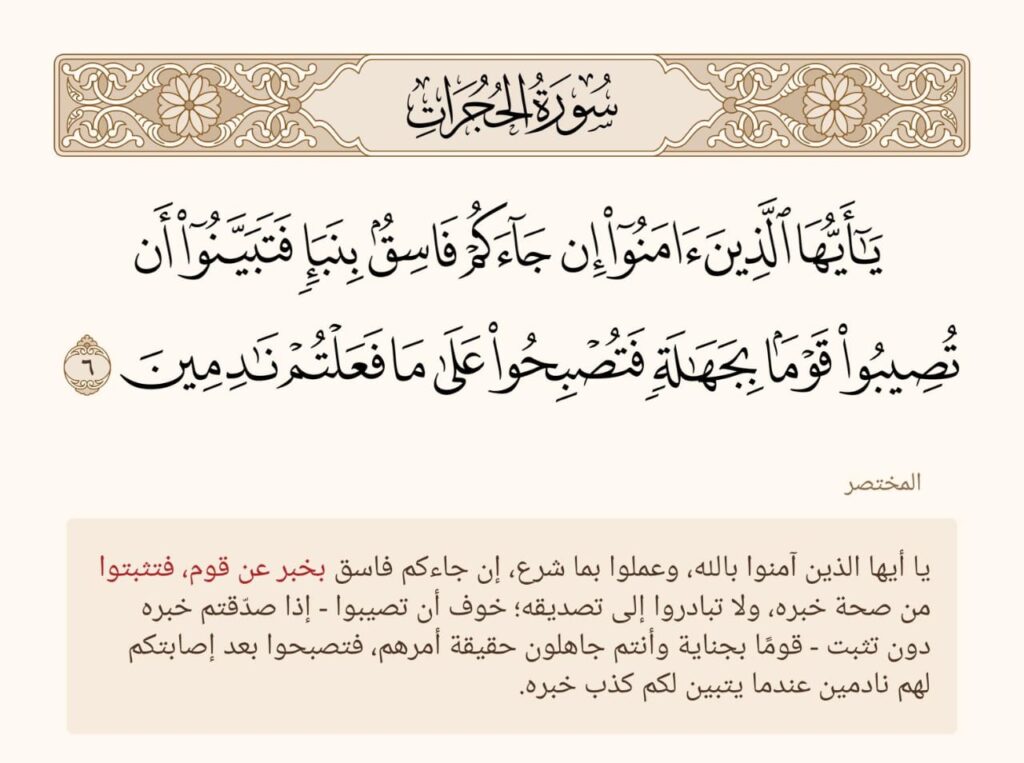 سُورَةُ الحُجُرَاتِ
يَـٰٓأَيُّهَا ٱلَّذِينَ ءَامَنُوٓا۟ إِن جَآءَكُمْ فَاسِقٌۢ بِنَبَإٍ فَتَبَيَّنُوٓا۟ أَن
تُصِيبُوا۟ قَوْمًۢا بِجَهَـٰلَةٍ فَتُصْبِحُوا۟ عَلَىٰ مَا فَعَلْتُمْ نَـٰدِمِينَ ٦
المختصر
يا أيها الذين آمنوا بالله، وعملوا بما شرع، إن جاءكم فاسق بخبر عن قوم، فتثبتوا
من صحة خبره، ولا تبادروا إلى تصديقه؛ خوف أن تصيبوا - إذا صدّقتم خبره
دون تثبت - قومًا بجناية وأنتم جاهلون حقيقة أمرهم، فتصبحوا بعد إصابتكم
لهم نادمين عندما يتبين لكم كذب خبره.